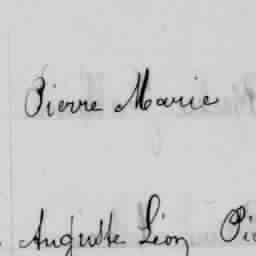 Pierre Marie
Auguste Léon Pie